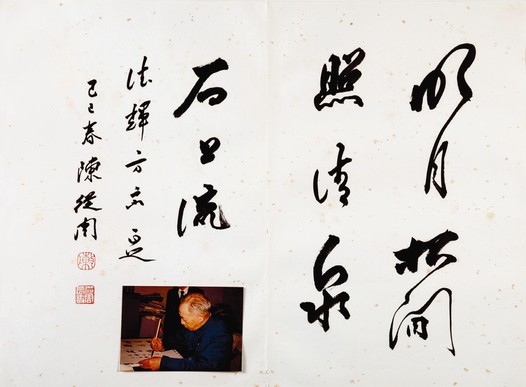 明月松間
照清泉
石上流
德輝方家正
己巳春陳從周